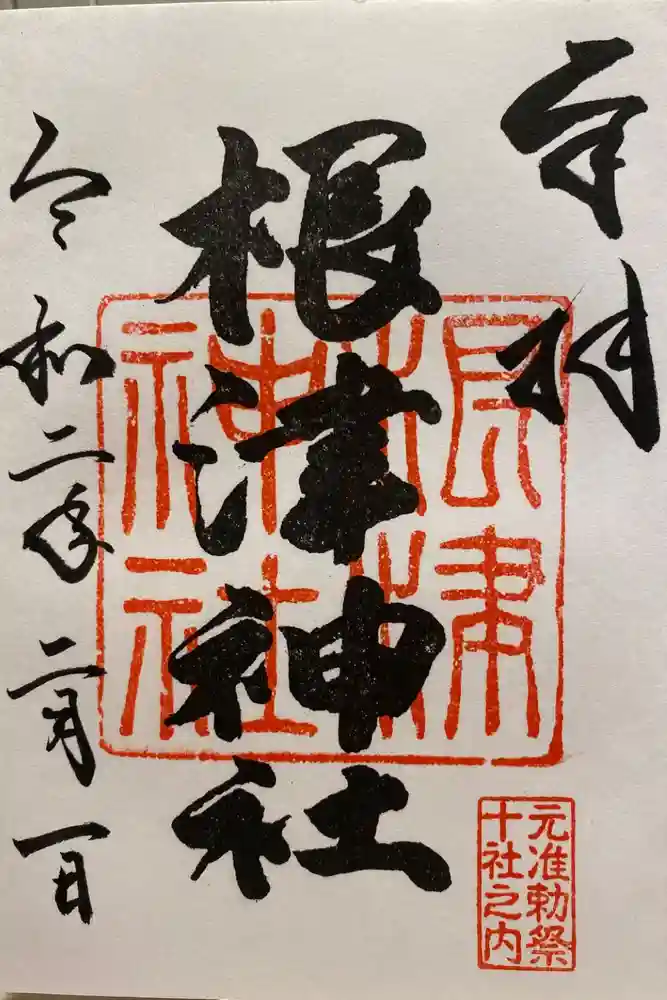 奉拝
根津神社
根津
神社
元准勅祭
十社之内
令和二年二月一日